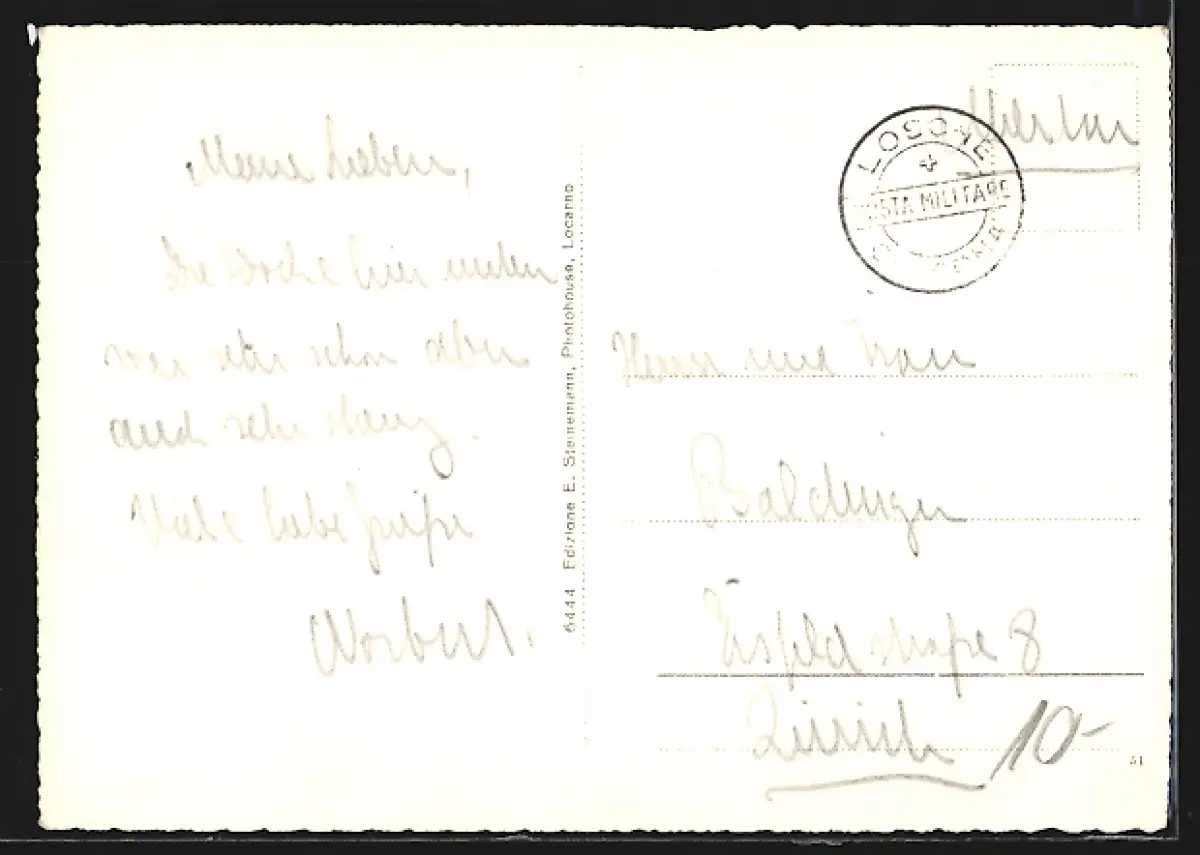 Meine Lieben,
Die Woche hier unten
war sehr schön aber
auch sehr streng.
Viele liebe Grüße
Norbert.
6444 Edizione E. Steinemann, Photohouse, Locarno
LOSONE
POSTA MILITARE
Herrn und Frau
Baldinger
Eisfeldstraße 8
Zürich
10-
51